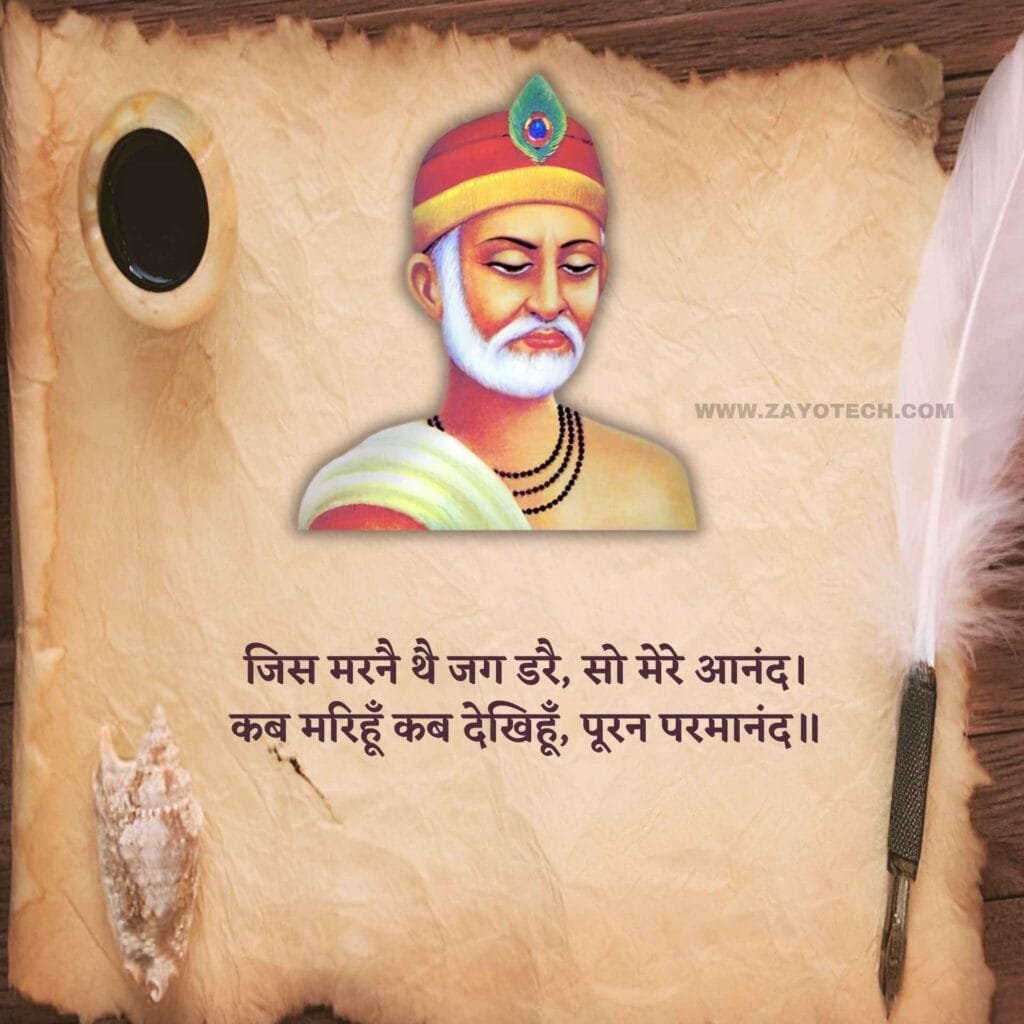 WWW.ZAYOTECH.COM
जिस मरनै थै जग डरै, सो मेरे आनंद।
कब मरिहूँ कब देखिहूँ, पूरन परमानंद॥